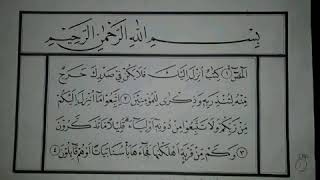 بِسْمِ اللَّهِ الرَّحْمَٰنِ الرَّحِيمِ
الٓمٓصٓ ١ كِتَٰبٌ أُنزِلَ إِلَيْكَ فَلَا يَكُن فِى صَدْرِكَ حَرَجٌ
مِّنْهُ لِتُنذِرَ بِهِۦ وَذِكْرَىٰ لِلْمُؤْمِنِينَ ٢ ٱتَّبِعُوا۟ مَآ أُنزِلَ إِلَيْكُم
مِّن رَّبِّكُمْ وَلَا تَتَّبِعُوا۟ مِن دُونِهِۦٓ أَوْلِيَآءَ قَلِيلًا مَّا تَذَكَّرُونَ
٣ وَكَم مِّن قَرْيَةٍ أَهْلَكْنَٰهَا فَجَآءَهَا بَأْسُنَا بَيَٰتًا أَوْ هُمْ قَآئِلُونَ ٤